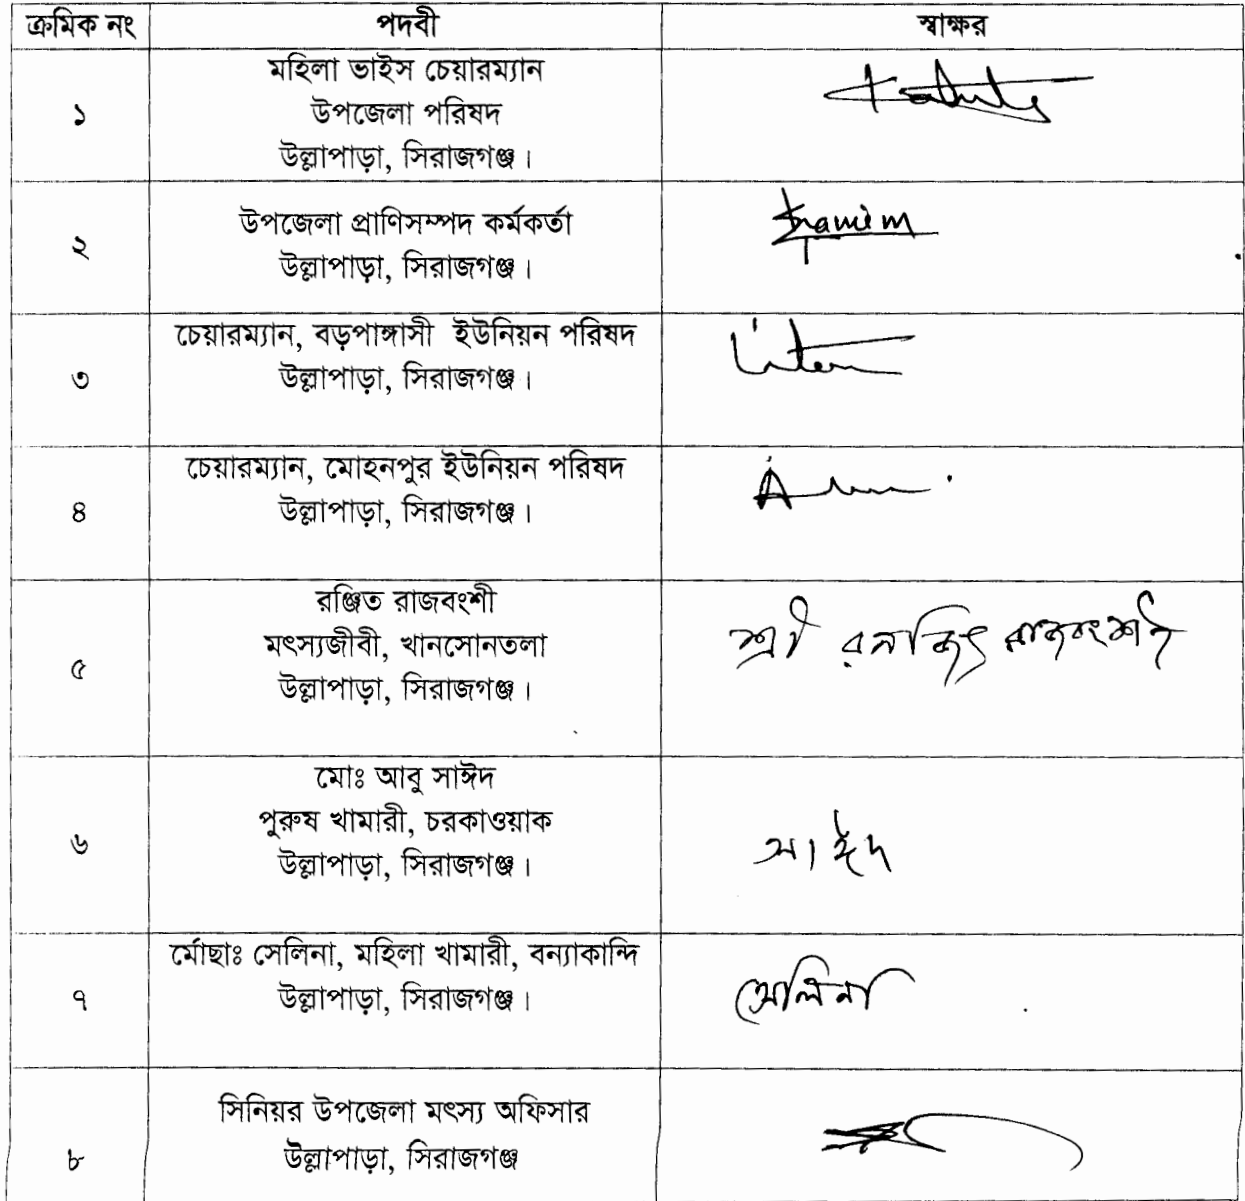 ক্রমিক নং পদবী স্বাক্ষর
মহিলা ভাইস চেয়ারম্যান
১ উপজেলা পরিষদ
উল্লাপাড়া, সিরাজগঞ্জ।
উপজেলা প্রাণিসম্পদ কর্মকর্তা
২ উল্লাপাড়া, সিরাজগঞ্জ।
চেয়ারম্যান, বড়পাঙ্গাসী ইউনিয়ন পরিষদ
৩ উল্লাপাড়া, সিরাজগঞ্জ।
চেয়ারম্যান, মোহনপুর ইউনিয়ন পরিষদ
৪ উল্লাপাড়া, সিরাজগঞ্জ।
রঞ্জিত রাজবংশী
মৎস্যজীবী, খানসোনতলা শ্রী রনজিৎ রাজবংশী
৫ উল্লাপাড়া, সিরাজগঞ্জ।
মোঃ আবু সাঈদ
পুরুষ খামারী, চরকাওয়াক
৬ উল্লাপাড়া, সিরাজগঞ্জ। সাঈদ
র্মোছাঃ সেলিনা, মহিলা খামারী, বন্যাকান্দি
৭ উল্লাপাড়া, সিরাজগঞ্জ। সেলিনা
সিনিয়র উপজেলা মৎস্য অফিসার
৮ উল্লাপাড়া, সিরাজগঞ্জ